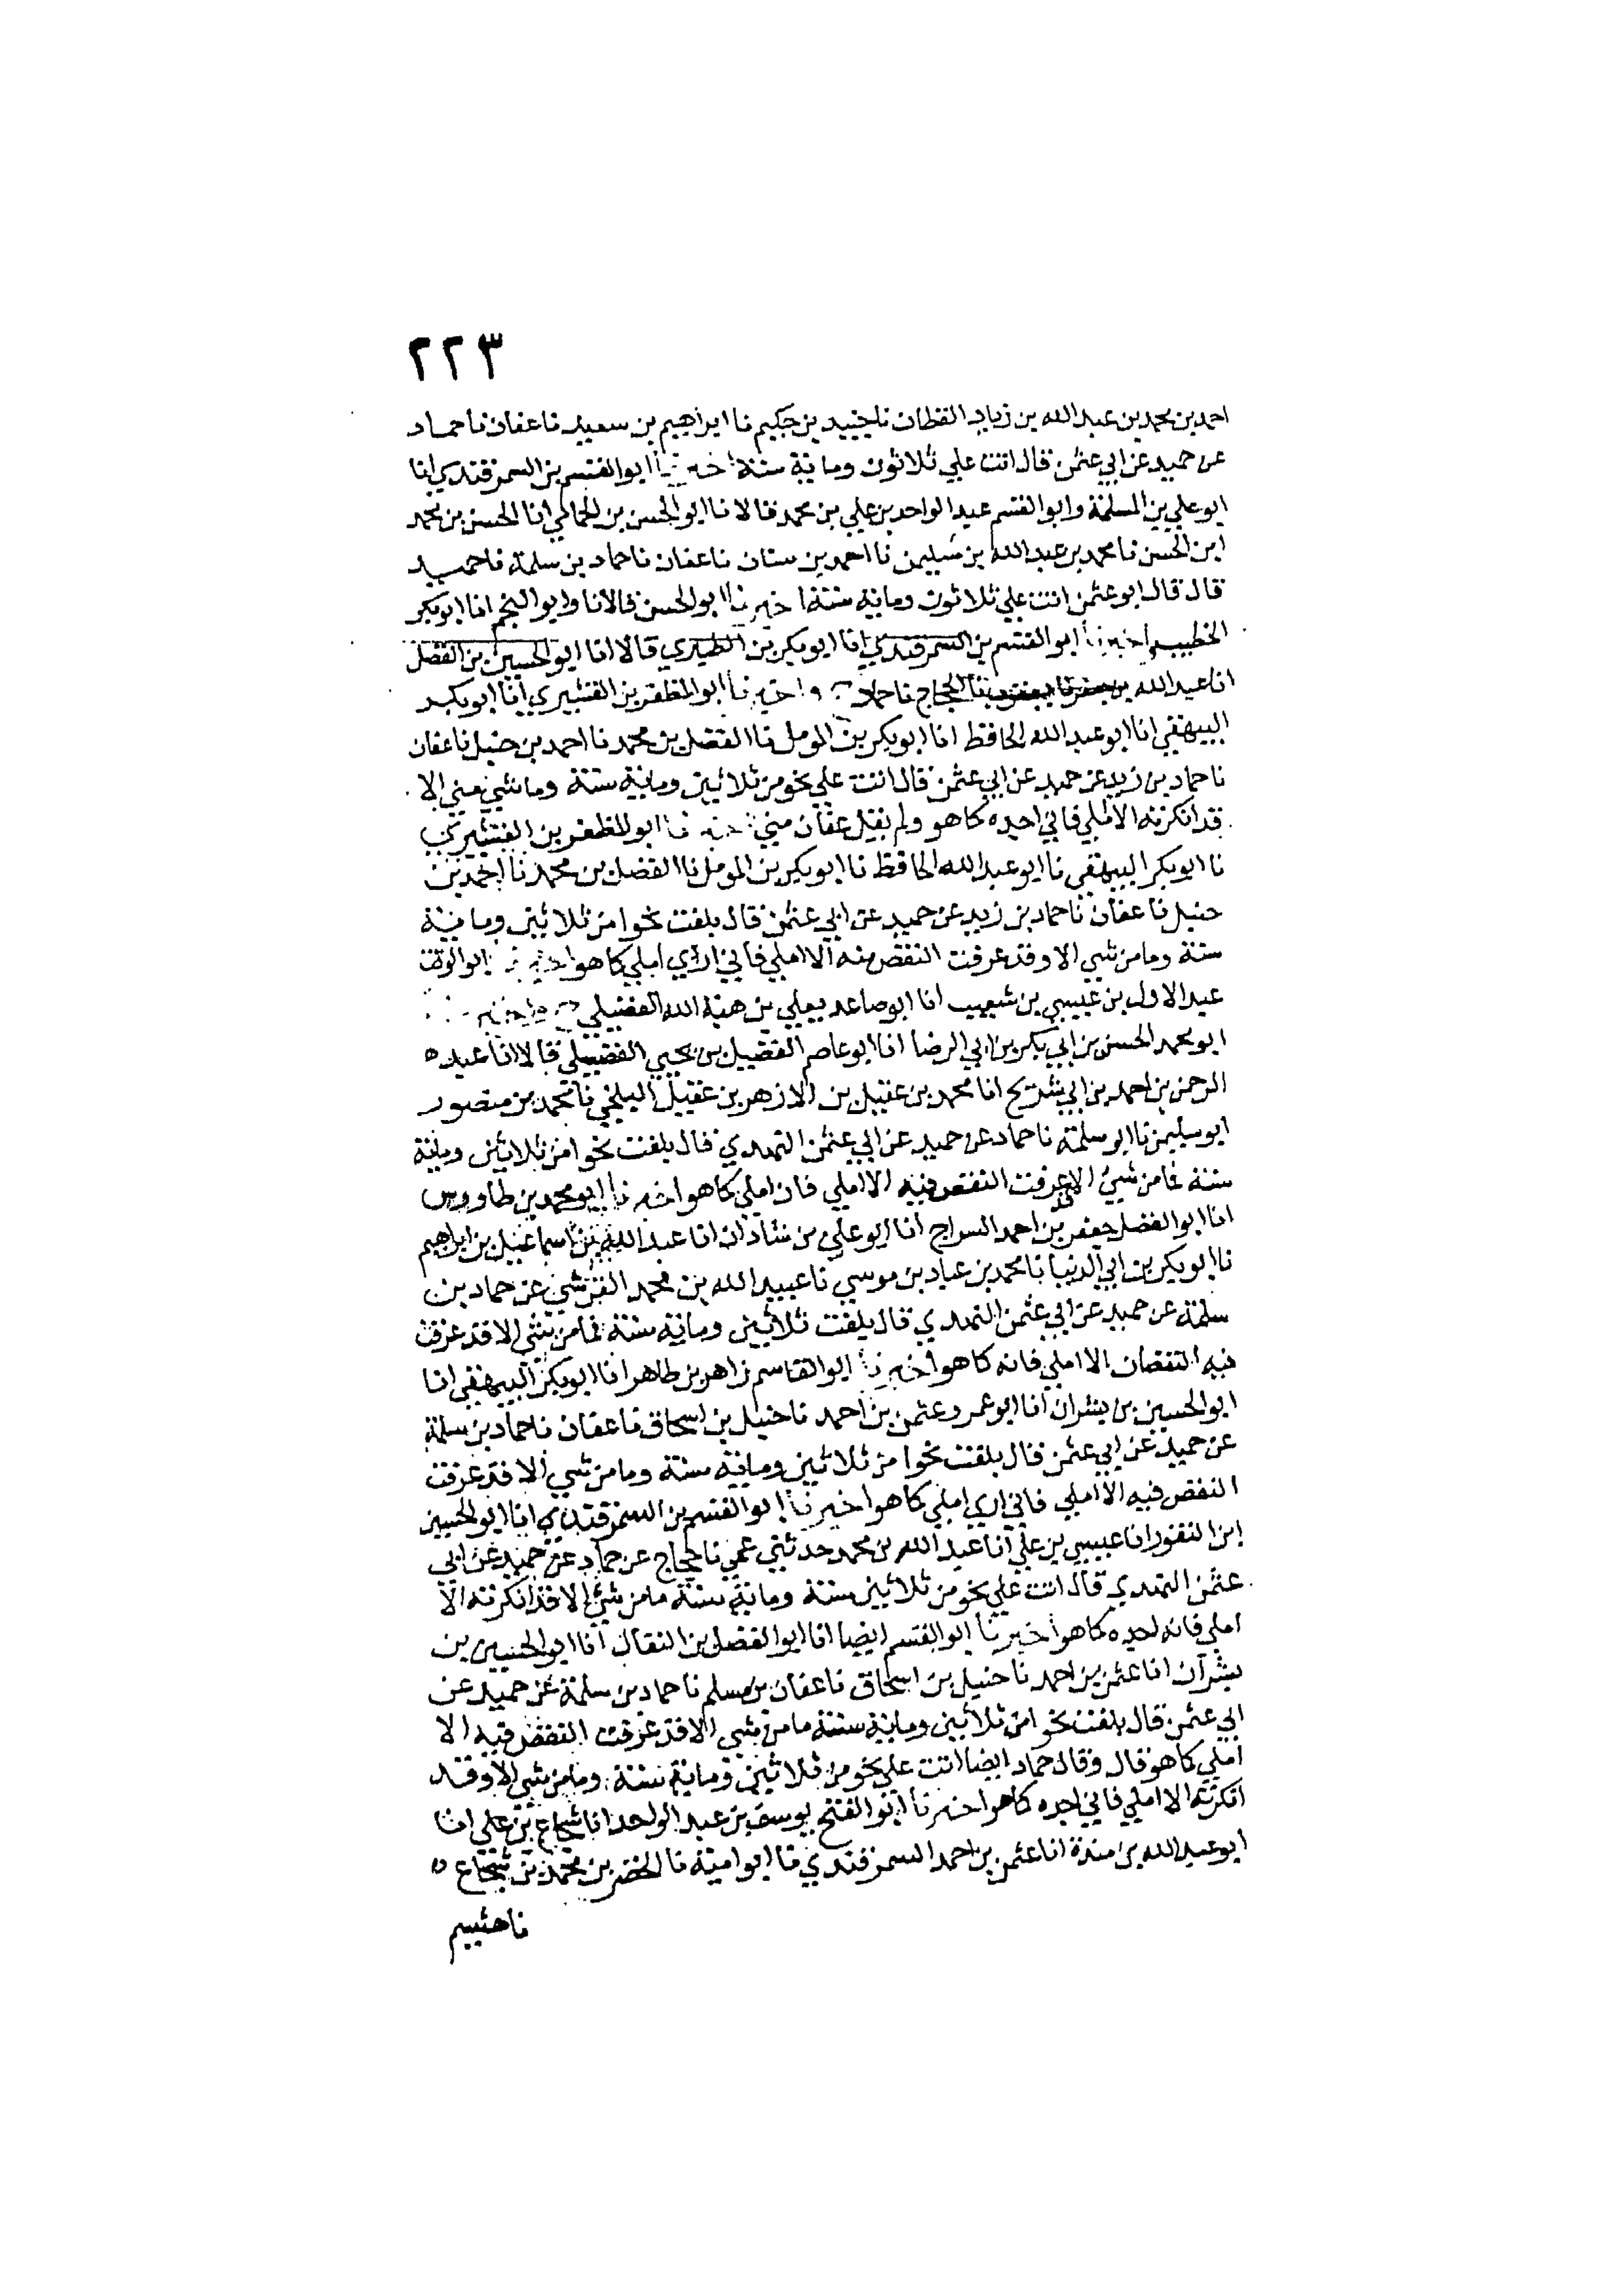 ٢٢٣
احمد بن محمد بن عبد الله بن زياد القطان نا جنيد بن حكيم نا ابراهيم بن سعيد نا عفان نا حماد
عن حميد عن ابي عثمن قال اتت علي ثلاثون ومائة سنة اخبرنا ابو القسم بن السمرقندي انا
ابو علي بن المسلمة وابو القسم عبد الواحد بن علي بن محمد قالا نا ابو الحسن بن الحمامي انا الحسن بن محمد
ابن الحسن نا محمد بن عبد الله بن سليمن نا احمد بن سنان نا عفان نا حماد بن سلمة نا حميد
قال قال ابو عثمن اتت علي ثلاثون ومائة سنة اخبرنا ابو الحسن قالانا وابو النجم انا ابو بكر
الخطيب واخبرنا ابو القسم بن السمرقندي انا ابو بكر بن الطبري قالا انا ابو الحسين بن الفضل
انا عبد الله بن جعفر نا يعقوب نا الحجاج نا حماد ح واخبرنا ابو المظفر بن القشيري انا ابو بكر
البيهقي انا ابو عبد الله الحافظ انا ابو بكر بن المومل نا الفضل بن محمد نا احمد بن حنبل نا عفان
نا حماد بن زيد عن حميد عن ابي عثمن قال اتت علي نحو من ثلاثين ومائة سنة وما شي مني الا
قد انكرته الا املي فاني اجده كما هو ولم يقل عفان مني اخبرنا ابو المظفر بن القشيري
نا ابو بكر البيهقي نا ابو عبد الله الحافظ نا ابو بكر بن المومل نا الفضل بن محمد نا احمد بن
حنبل نا عفان نا حماد بن زيد عن حميد عن ابي عثمن قال بلغت نحوا من ثلاثين ومائة
سنة وما من شي الا وقد عرفت النقص منه الا املي فاني اري املي كما هو اخبرنا ابو الوقت
عبد الاول بن عيسي بن شعيب انا ابو صاعد يعلي بن هبة الله الفضيلي ح واخبرنا
ابو محمد الحسن بن ابي بكر بن ابي الرضا انا ابو عاصم الفضيل بن يحيي الفضيلي قالا انا عبد
الرحمن بن احمد بن ابي شريح انا محمد بن عقيل بن الازهر بن عقيل البلخي نا محمد بن منصور
ابو سليمن نا ابو سلمة نا حماد عن حميد عن ابي عثمن النهدي قال بلغت نحوا من ثلاثين ومائة
سنة فما من شي الا عرفت النقص فيه الا املي فان املي كما هو اخبرنا ابو محمد بن طاووس
انا ابو الفضل جعفر بن احمد السراج انا ابو علي بن شاذان انا عبد الله بن اسماعيل بن ابراهيم
نا ابو بكر بن ابي الدنيا نا محمد بن عباد بن موسي نا عبيد الله بن محمد القرشي عن حماد بن
سلمة عن حميد عن ابي عثمن النهدي قال بلغت ثلاثين ومائة سنة فما من شي الا قد عرفت
فيه النقصان الا املي فانه كما هو اخبرنا ابو القاسم زاهر بن طاهر انا ابو بكر البيهقي انا
ابو الحسين بن بشران انا ابو عمرو عثمن بن احمد نا حنبل بن اسحاق نا عفان نا حماد بن سلمة
عن حميد عن ابي عثمن قال بلغت نحوا من ثلاثين ومائة سنة وما من شي الا قد عرفت
النقص فيه الا املي فاني اري املي كما هو اخبرنا ابو القسم بن السمرقندي انا ابو الحسين
ابن النقور انا عيسي بن علي انا عبد الله بن محمد حدثني عمي نا حجاج عن حماد عن حميد عن ابي
عثمن النهدي قال اتت علي نحو من ثلاثين سنة ومائة سنة ما من شي الا قد انكرته الا
املي فانه اجده كما هو اخبرنا ابو القسم ايضا انا ابو الفضل بن البقال انا ابو الحسين بن
بشران انا عثمن بن احمد نا حنبل بن اسحاق نا عفان بن مسلم نا حماد بن سلمة عن حميد عن
ابي عثمن قال بلغت نحوا من ثلاثين ومائة سنة ما من شي الا قد عرفت النقص فيه الا
املي كما هو قال وقال حماد ايضا اتت علي نحو من ثلاثين ومائة سنة وما من شي الا وقد
انكرته الا املي فاني اجده كما هو اخبرنا ابو الفتح يوسف بن عبد الواحد انا شجاع بن علي انا
ابو عبد الله بن مندة انا عثمن بن احمد السمرقندي نا ابو امية نا الخضر بن محمد بن شجاع
نا هشيم